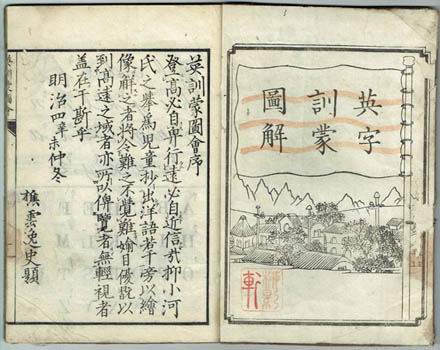 英字
訓蒙
圖解
軒
英訓蒙圖會序
登高必自卑行遠必自近信哉抑小河
氏之擧為児童抄出洋語若干旁以繪
像解之者将令難之不覺難目優以
到高遠之域者亦所以俾覽者無輕視者
盖在于斯乎
明治四辛未仲冬
樵雲逸史題